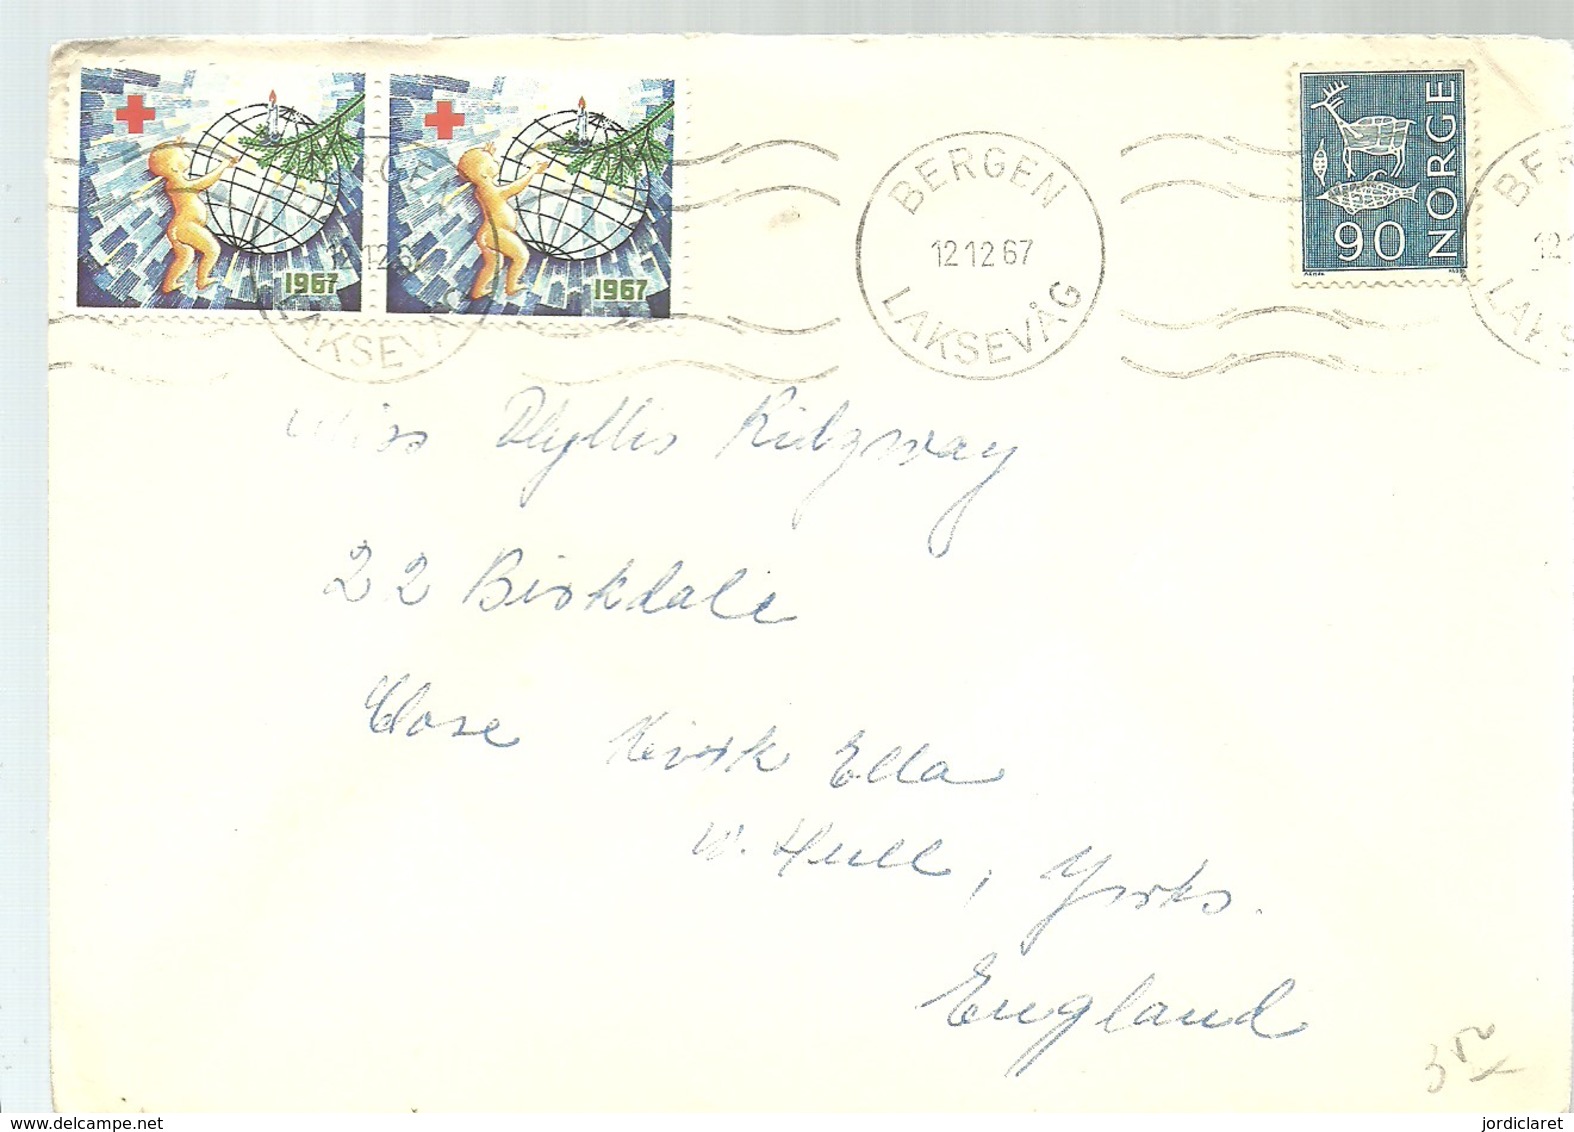 1967
1967
BERGEN
12 12 67
LAKSEVÅG
BERGEN
12.12.67
LAKSEVÅG
NORGE
90
Miss Phyllis Ridgway
22 Birkdale
Close Kirk Ella
W. Hull, Yorks.
England
jordiclaret